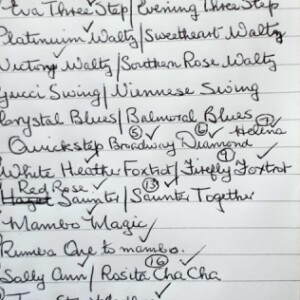 Eva Three Step/Evening Three Step
Platinum Waltz/Sweetheart Waltz
Victory Waltz/Southern Rose Waltz
Gucci Swing/Viennese Swing
Crystal Blues/Balmoral Blues
⑤ ⑥ Helena ⑦
Quickstep Broadway Diamond
White Heather Foxtrot/Firefly Foxtrot ⑨
Red Rose ⑬
Saunter/Saunter Together
Mambo Magic/
Rumba One to mambo.
Sally Ann/Rosita Cha Cha ⑯